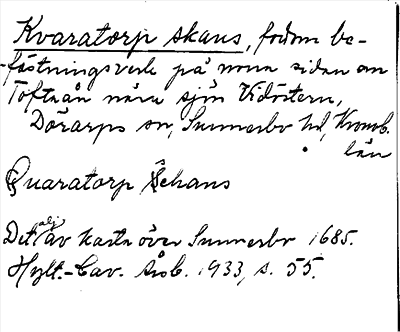 Kvaratorp skans, fordom be-
-fästningsverk på norra sidan om
Toftaån nära sjön Vidöstern,
Dörarps sn, Sunnerbo hd, Kronob.
län
Quaratorp Schans
Detalj av karta över Sunnerbo 1685.
Hylt.-Cav. Årsb. 1933, s. 55.